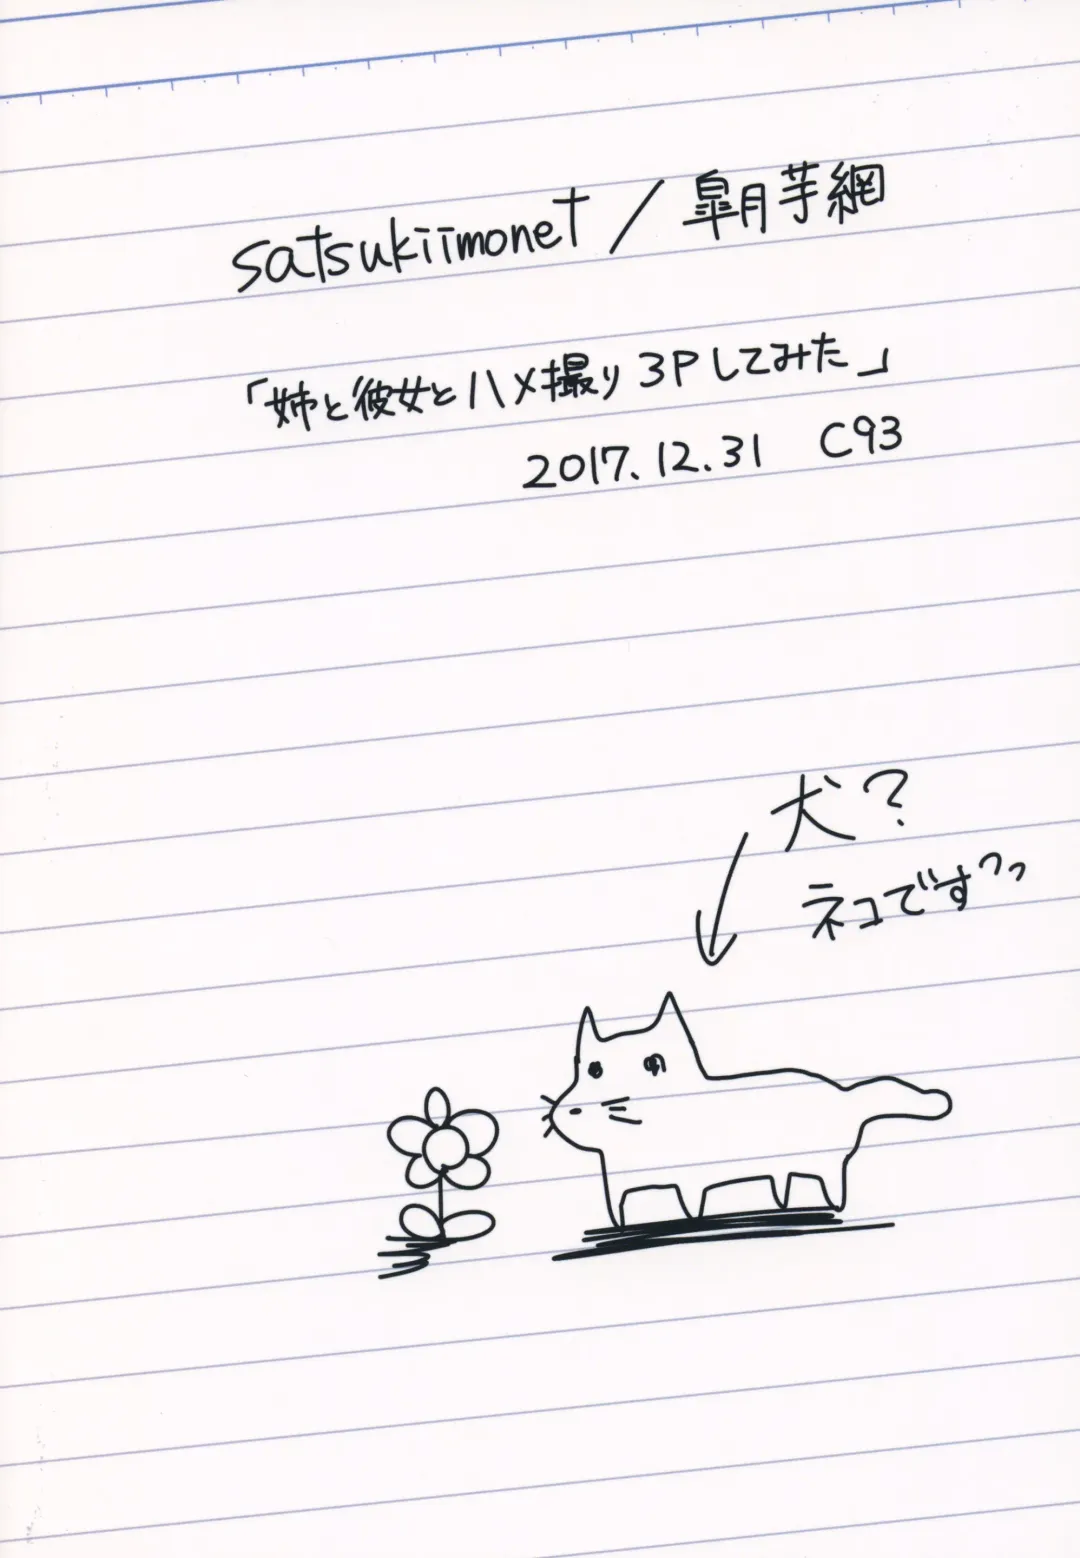 satsukiimonet / 皐月芋網
「姉と彼女とハメ撮り3Pしてみた」
2017.12.31 C93
犬?
ネコですっっ